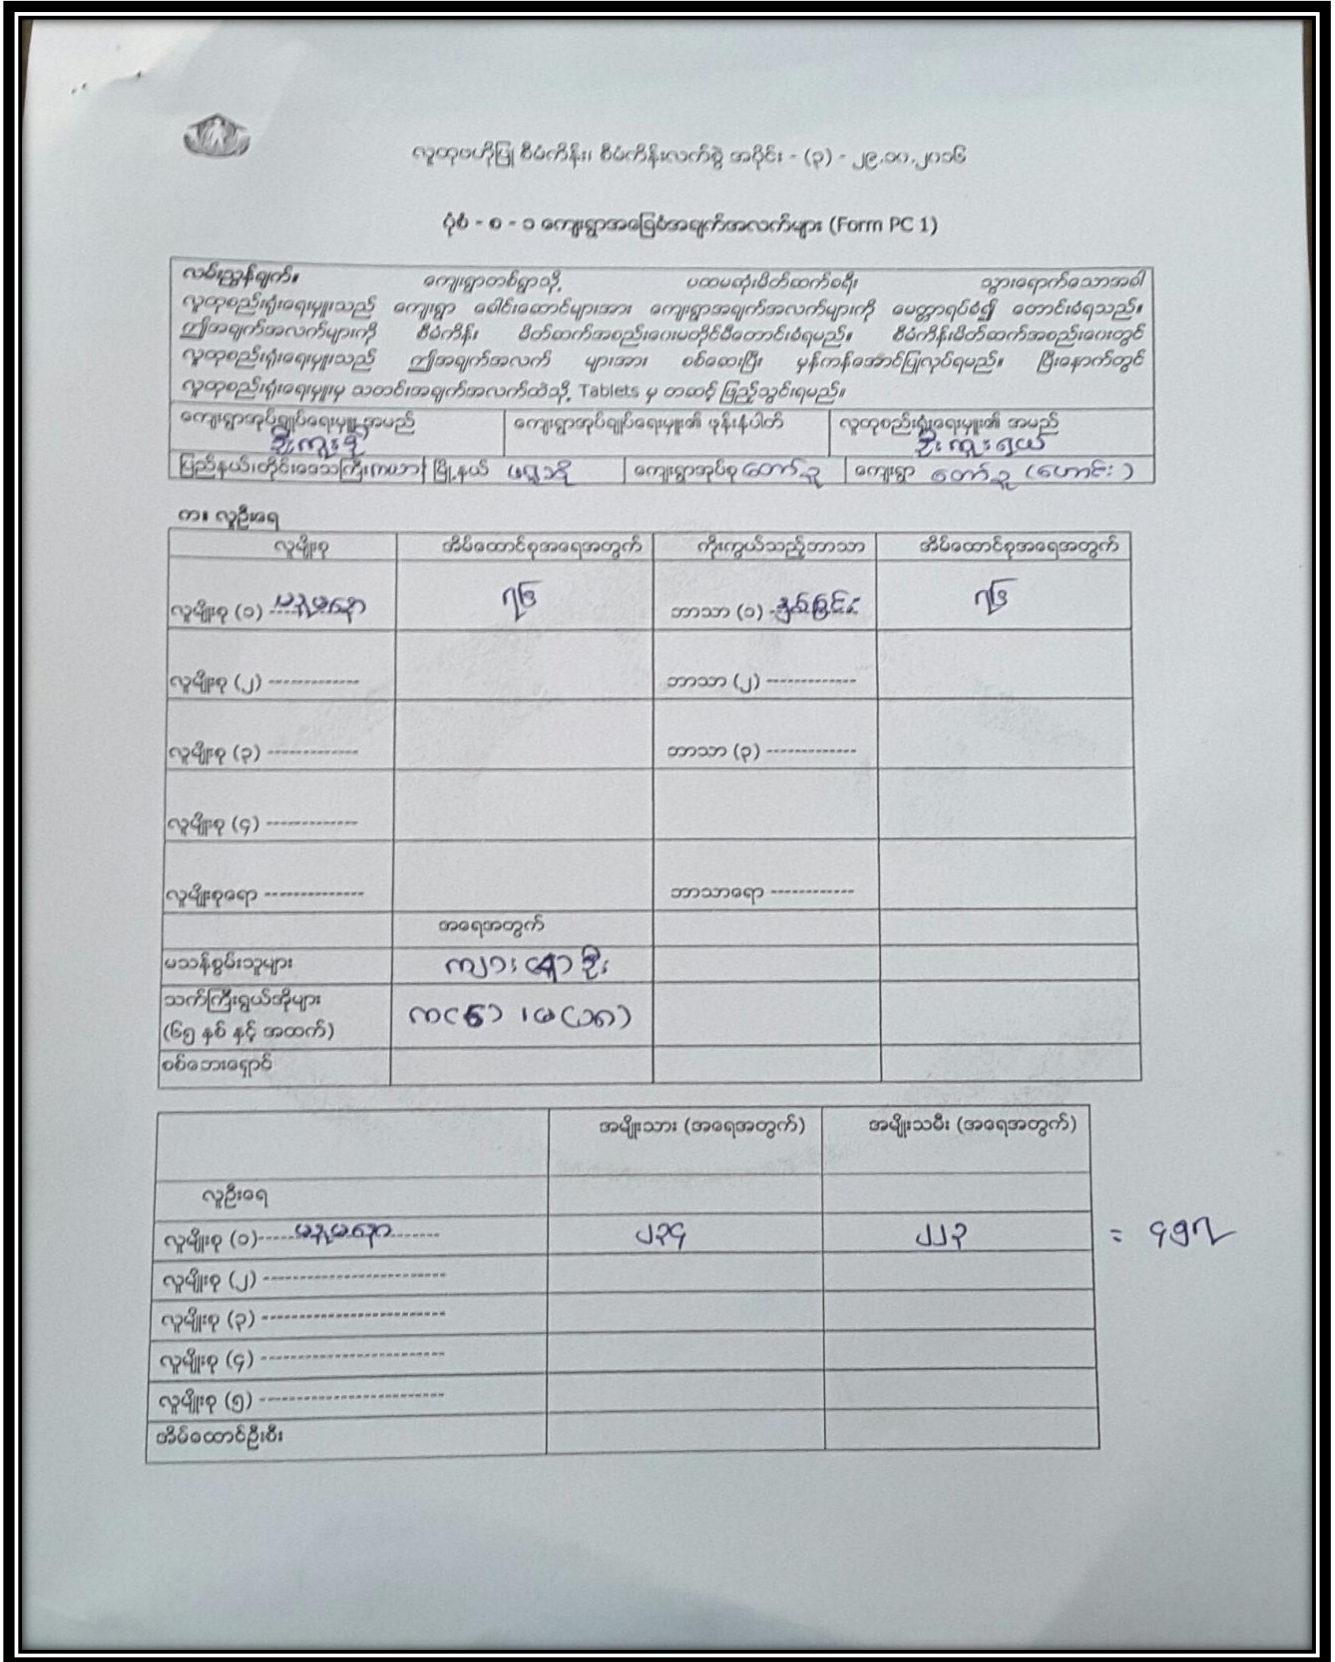 လူထုဗဟိုပြု စီမံကိန်း၊ စီမံကိန်းလက်စွဲ အပိုင်း - (၃) - ၂၉.၁၀.၂၀၁၆
ပုံစံ - စ - ၁ ကျေးရွာအခြေခံအချက်အလက်များ (Form PC 1)
လမ်းညွှန်ချက်။ ကျေးရွာတစ်ရွာသို့ ပထမဆုံးမိတ်ဆက်ခရီး သွားရောက်သောအခါ
လူထုစည်းရုံးရေးမှူးသည် ကျေးရွာ ခေါင်းဆောင်များအား ကျေးရွာအချက်အလက်များကို မေတ္တာရပ်ခံ၍ တောင်းခံရသည်။
ဤအချက်အလက်များကို စီမံကိန်း မိတ်ဆက်အစည်းဝေးမတိုင်မီတောင်းခံရမည်။ စီမံကိန်းမိတ်ဆက်အစည်းဝေးတွင်
လူထုစည်းရုံးရေးမှူးသည် ဤအချက်အလက် များအား စစ်ဆေးပြီး မှန်ကန်အောင်ပြုလုပ်ရမည်။ ပြီးနောက်တွင်
လူထုစည်းရုံးရေးမှူးမှ သတင်းအချက်အလက်ထဲသို့ Tablets မှ တဆင့် ဖြည့်သွင်းရမည်။
ကျေးရွာအုပ်ချုပ်ရေးမှူး အမည် ကျေးရွာအုပ်ချုပ်ရေးမှူး၏ ဖုန်းနံပါတ် လူထုစည်းရုံးရေးမှူး၏ အမည်
ပြည်နယ်/တိုင်းဒေသကြီး ကယား မြို့နယ် ကျေးရွာအုပ်စု ကျေးရွာ (ဟောင်း)
က။ လူဦးရေ
လူမျိုးစု အိမ်ထောင်စုအရေအတွက် ကိုးကွယ်သည့်ဘာသာ အိမ်ထောင်စုအရေအတွက်
လူမျိုးစု (၁) မနုမနော ၇၆ ဘာသာ (၁) နှစ်ခြင်း ၇၆
လူမျိုးစု (၂) ------------- ဘာသာ (၂) -------------
လူမျိုးစု (၃) ------------- ဘာသာ (၃) -------------
လူမျိုးစု (၄) -------------
လူမျိုးစုရော -------------- ဘာသာရော ------------
အရေအတွက်
မသန်စွမ်းသူများ ကျား ၊ ဦး
သက်ကြီးရွယ်အိုများ
(၆၅ နှစ် နှင့် အထက်)
စစ်ဘေးရှောင်
အမျိုးသား (အရေအတွက်) အမျိုးသမီး (အရေအတွက်)
လူဦးရေ
လူမျိုးစု (၁) မနုမနော ၂၃၄ ၂၂၃ = ၄၅၇
လူမျိုးစု (၂) --------------------------
လူမျိုးစု (၃) --------------------------
လူမျိုးစု (၄) --------------------------
လူမျိုးစု (၅) --------------------------
အိမ်ထောင်ဦးစီး